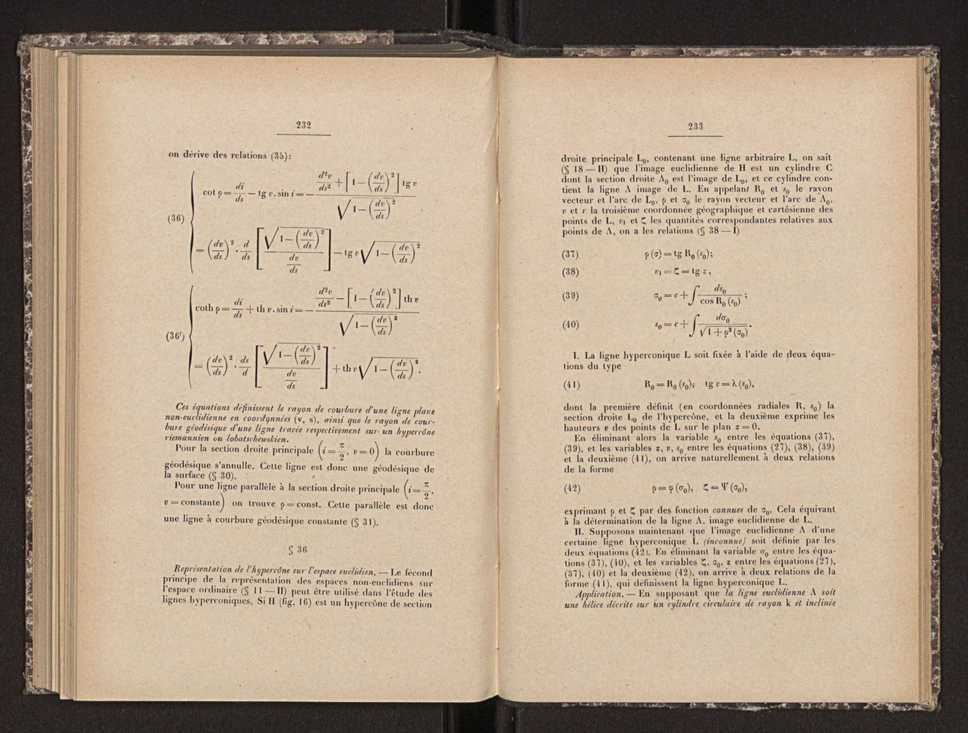 232
on dérive des relations (35):
(36) { cot ρ = di/ds − tg v. sin i = − ( d²v/ds² + [1 − (dv/ds)²] tg v ) / √(1 − (dv/ds)²)
= (dv/ds)² · d/ds [ √(1 − (dv/ds)²) / (dv/ds) ] − tg v √(1 − (dv/ds)²)
(36') { coth ρ = di/ds + th v. sin i = − ( d²v/ds² − [1 − (dv/ds)²] th v ) / √(1 − (dv/ds)²)
= (dv/ds)² · ds/d [ √(1 − (dv/ds)²) / (dv/ds) ] + th v √(1 − (dv/ds)²).
Ces équations définissent le rayon de courbure d'une ligne plane
non-euclidienne en coordonnées (v, s), ainsi que le rayon de cour-
bure géodésique d'une ligne tracée respectivement sur un hypercône
riemannien ou lobatschewskien.
Pour la section droite principale (i = π/2, v = 0) la courbure
géodésique s'annulle. Cette ligne est donc une géodésique de
la surface (§ 30).
Pour une ligne parallèle à la section droite principale (i = π/2,
v = constante) on trouve ρ = const. Cette parallèle est donc
une ligne à courbure géodésique constante (§ 31).
§ 36
Représentation de l'hypercône sur l'espace euclidien. — Le fécond
principe de la représentation des espaces non-euclidiens sur
l'espace ordinaire (§ 11 — II) peut être utilisé dans l'étude des
lignes hyperconiques. Si H (fig. 16) est un hypercône de section
233
droite principale L₀, contenant une ligne arbitraire L, on sait
(§ 18 — II) que l'image euclidienne de H est un cylindre C
dont la section droite Λ₀ est l'image de L₀, et ce cylindre con-
tient la ligne Λ image de L. En appelant R₀ et s₀ le rayon
vecteur et l'arc de L₀, ρ et σ₀ le rayon vecteur et l'arc de Λ₀,
v et z la troisième coordonnée géographique et cartésienne des
points de L, v₁ et ζ les quantités correspondantes relatives aux
points de Λ, on a les relations (§ 38 — I)
(37) ρ (σ) = tg R₀ (s₀);
(38) v₁ = ζ = tg z,
(39) σ₀ = c + ∫ ds₀ / cos R₀ (s₀) ;
(40) s₀ = c + ∫ dσ₀ / √(1 + ρ² (σ₀)).
I. La ligne hyperconique L soit fixée à l'aide de deux équa-
tions du type
(41) R₀ = R₀ (s₀); tg v = λ (s₀),
dont la première définit (en coordonnées radiales R, s₀) la
section droite L₀ de l'hypercône, et la deuxième exprime les
hauteurs v des points de L sur le plan z = 0.
En éliminant alors la variable s₀ entre les équations (37),
(39), et les variables z, v, s₀ entre les équations (27), (38), (39)
et la deuxième (41), on arrive naturellement à deux relations
de la forme
(42) ρ = φ (σ₀), ζ = Ψ (σ₀),
exprimant ρ et ζ par des fonction connues de σ₀. Cela équivant
à la détermination de la ligne Λ, image euclidienne de L.
II. Supposons maintenant que l'image euclidienne Λ d'une
certaine ligne hyperconique L (inconnue) soit définie par les
deux équations (42). En éliminant la variable σ₀ entre les équa-
tions (37), (40), et les variables ζ, σ₀, z entre les équations (27),
(37), (40) et la deuxième (42), on arrive à deux relations de la
forme (41), qui définissent la ligne hyperconique L.
Application. — En supposant que la ligne euclidienne Λ soit
une hélice décrite sur un cylindre circulaire de rayon k et inclinée